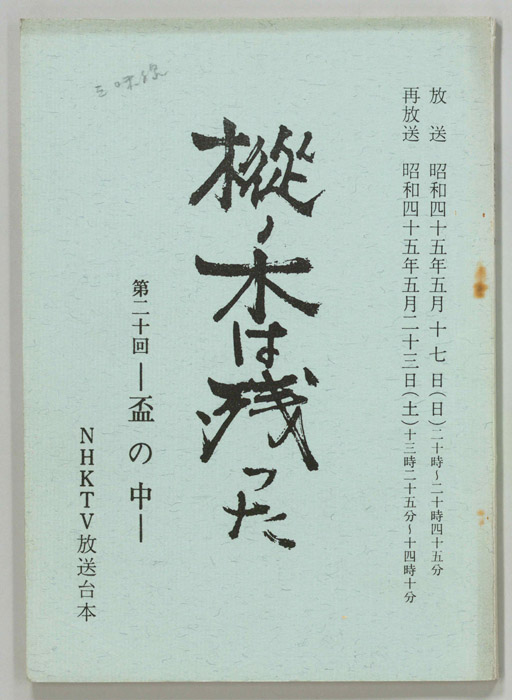 放送 昭和四十五年五月十七日(日)二十時~二十時四十五分
再放送 昭和四十五年五月二十三日(土)十三時二十五分~十四時十分
樅ノ木は残った
第二十回―盃の中―
NHKTV放送台本
三味線